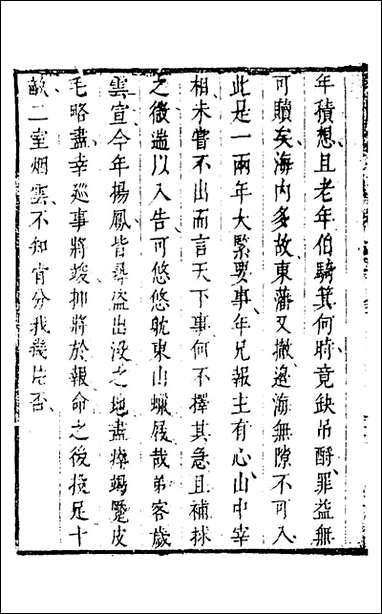 年積想且老年伯騎箕何時竟缺吊酹罪益無
可贖矣海内多故東藩又撤邊海無隙不可入
此是一兩年大緊要事年兄報主有心山中宰
相未嘗不出而言天下事何不擇其急且補捄
之徵遄以入告可悠悠躭東山蠟屐哉弟客歲
雲宣今年楊鳳皆勢盜出没之地盡瘁竭蹷皮
毛略盡幸巡事將竣抑將於報命之後投足十
畝二室烟雲不知肯分我幾片否